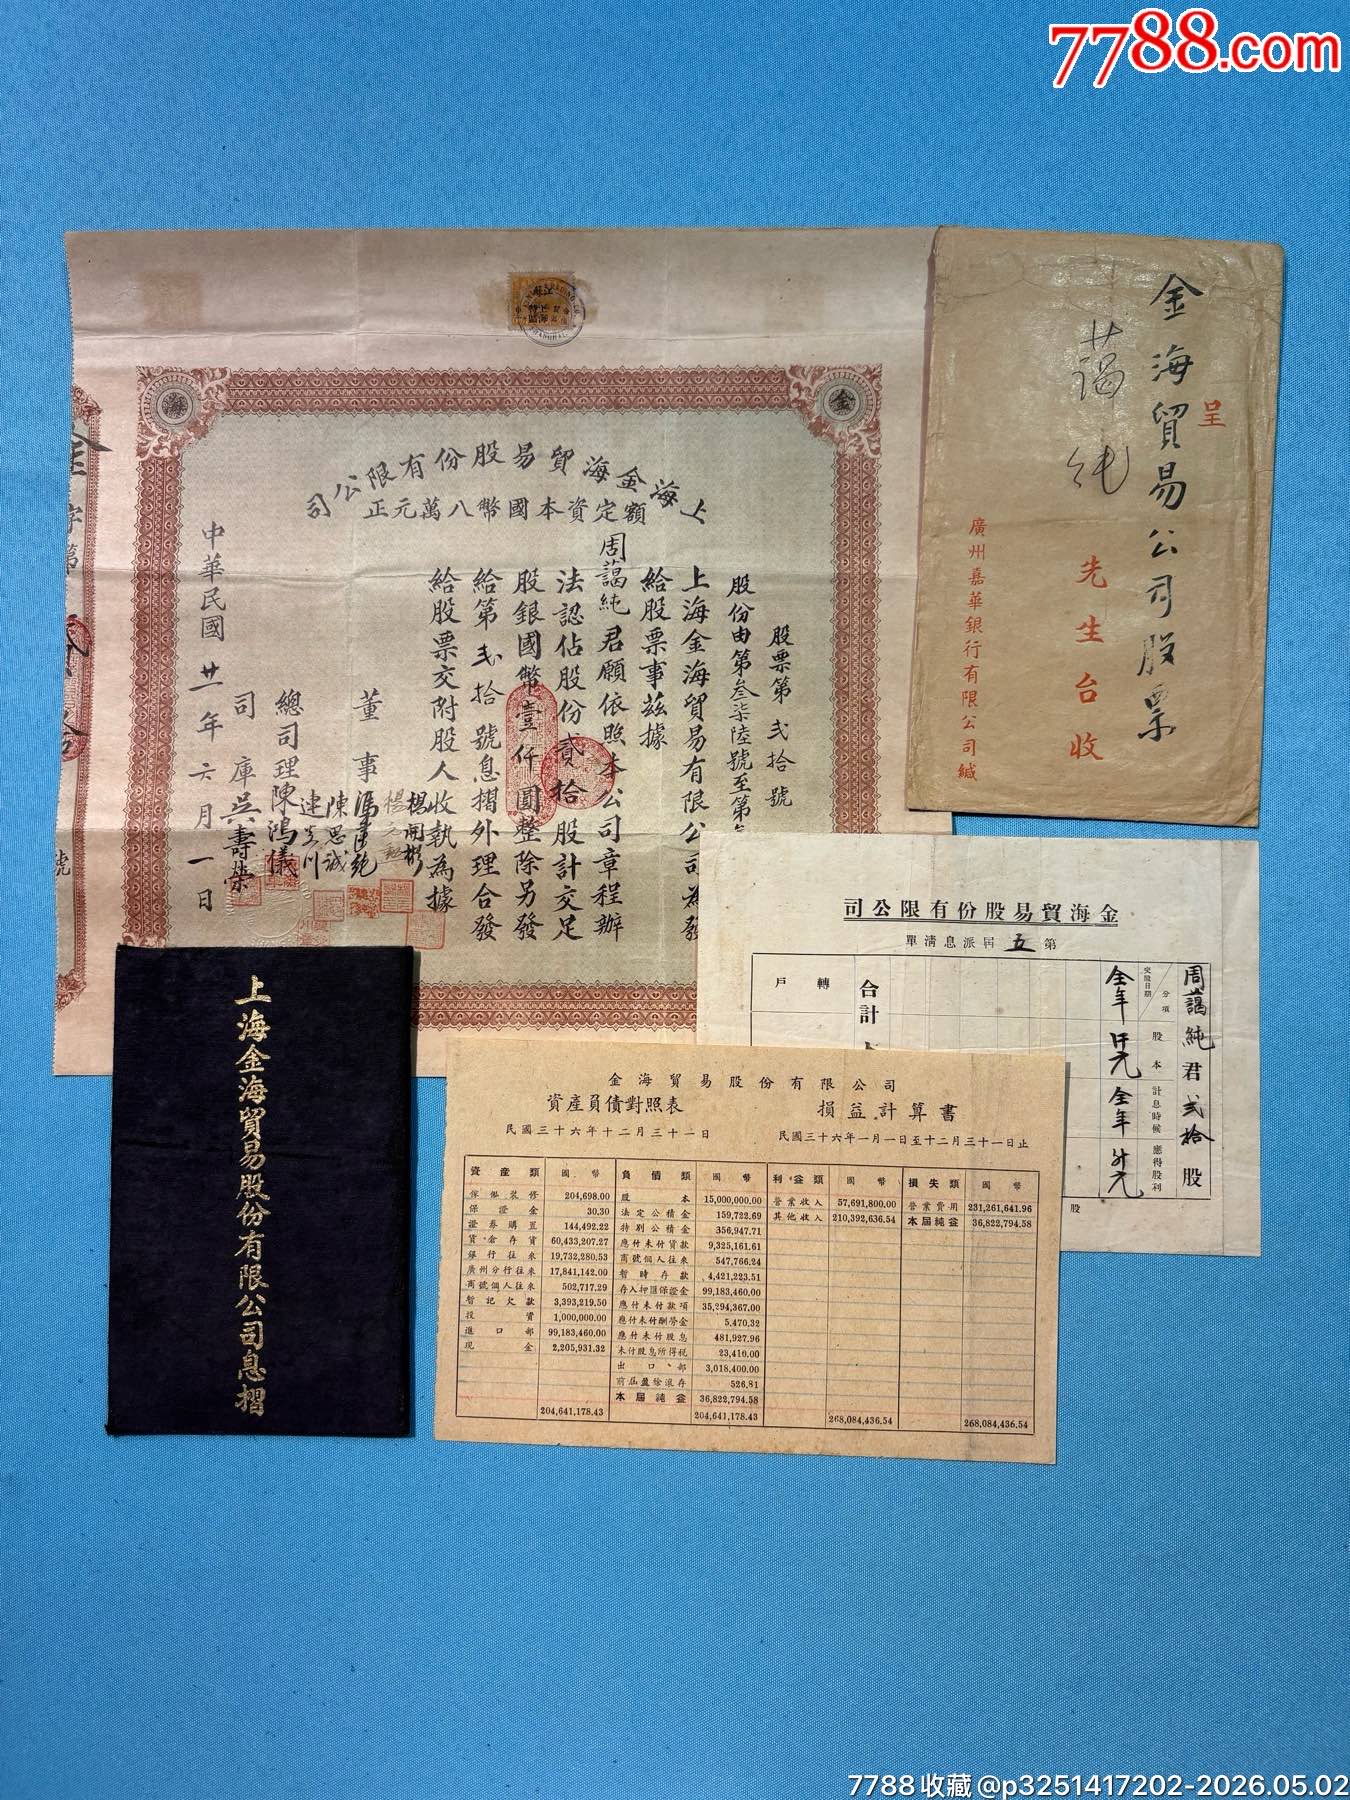 7788.com
上海金海貿易股份有限公司
額定資本國幣八萬元正
股票第弍拾號
股份由第叁柒陸號至第
上海金海貿易有限公司為發
給股票事茲據
周藹純君願依照本公司章程辦
法認佔股份貳拾股計交足
股銀國幣壹仟圓整除另發
給第弍拾號息摺外理合發
給股票交附股人收執為據
董事
楊開彬
陳思誠
總司理陳鴻儀
司庫吳壽榮
中華民國廿一年六月一日
金
海
金字第弍拾號
金海貿易公司股票
呈
藹純先生台收
廣州嘉華銀行有限公司緘
金海貿易股份有限公司
第五屆派息清單
周藹純君弍拾股
分項
股本
計息時候
應得股利
全年
仟元
全年
合計
轉戶
股
上海金海貿易股份有限公司息摺
金海貿易股份有限公司
資產負債對照表
民國三十六年十二月三十一日
損益計算書
民國三十六年一月一日至十二月三十一日止
資產類 國幣 負債類 國幣 利益類 國幣 損失類 國幣
傢俬裝修 204,698.00 股本 15,000,000.00 營業收入 57,691,800.00 營業費用 231,261,641.96
保證金 30.30 法定公積金 159,722.69 其他收入 210,392,636.54 本屆純益 36,822,794.58
證券購置 144,492.22 特別公積金 356,947.71
貨倉存貨 60,433,207.27 應付未付貨款 9,325,161.61
銀行往來 19,732,280.53 商號個人往來 547,766.24
廣州分行往來 17,841,142.00 暫時存款 4,421,223.51
商號個人往來 502,717.29 存入押匯保證金 99,183,460.00
暫記欠款 3,393,219.50 應付未付款項 35,294,367.00
投資 1,000,000.00 應付未付酬勞金 5,470.32
進口部 99,183,460.00 應付未付股息 481,927.96
現金 2,205,931.32 未付股息所得稅 23,410.00
出口部 3,018,400.00
前屆盈餘滾存 526.81
本屆純益 36,822,794.58
204,641,178.43 204,641,178.43 268,084,436.54 268,084,436.54
7788收藏@p3251417202-2026.05.02